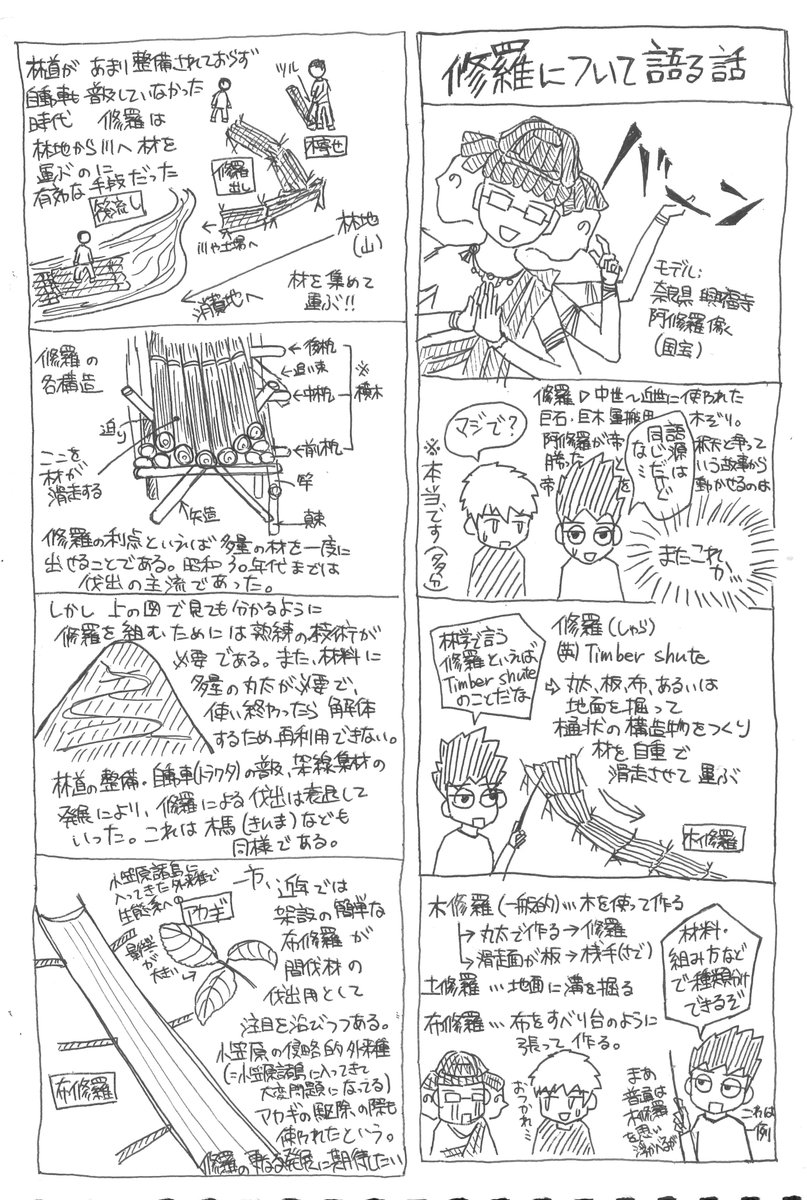 修羅について語る話
バーン
モデル:
奈良県 興福寺
阿修羅像
(国宝)
修羅▷中世〜近世に使われた
巨石・巨木運搬用 木ぞり。
阿修羅が帝釈天と争って
勝ったという故事から
帝 を動かせるのは
語源は
同じだけど
な…
マジで?
※本当です(多分)
またこれ
か…
修羅(しゅら)
(英)Timber shute
↳丸太、板、布、あるいは
地面を掘って
樋状の構造物をつくり
材を自重で
滑走させて運ぶ
林学で言う
修羅といえば
Timber shute
のことだな
木修羅
木修羅(一般的)…木を使って作る
↳丸太で作る→修羅
↳滑走面が板→桟手(さで)
土修羅…地面に溝を掘る
布修羅…布をすべり台のように
張って作る。
材料・
組み方など
で種類分け
できるぞ
おつかれ…
まぁ
普通は
木修羅
を思い
浮かべるが
これは
例
林道があまり整備されておらず
自動車も普及していなかった
時代 修羅は
林地から川へ材を
運ぶのに
有効な手段だった
ツル
木寄せ
修羅
出し
川や土場へ
管流し
林地
(山)
消費地へ
材を集めて
運ぶ!!
修羅の
各構造
←後桁
←追い木
←中桁
←前桁
※
横木
迫り
ここを
材が
滑走する
竿
矢造
修羅の利点といえば多量の材を一度に
出せることである。昭和30年代までは
伐出の主流であった。
しかし上の図で見ても分かるように
修羅を組むためには熟練の技術が
必要である。また、材料に
多量の丸太が必要で、
使い終わったら解体
するため再利用できない。
林道の整備・自動車(トラクタ)の普及、架線集材の
発展により、修羅による伐出は衰退して
いった。これは木馬(きんま)なども
同様である。
小笠原諸島に
入ってきた外来種で
生態系への
影響が
大きい
アカギ
一方、近年では
架設の簡単な
布修羅が
間伐材の
伐出用として
注目を浴びつつある。
小笠原の侵略的外来種
(=小笠原諸島に入ってきて
大変問題になってる)
アカギの駆除の際も
使われたという。
修羅の更なる発展に期待したい
布修羅